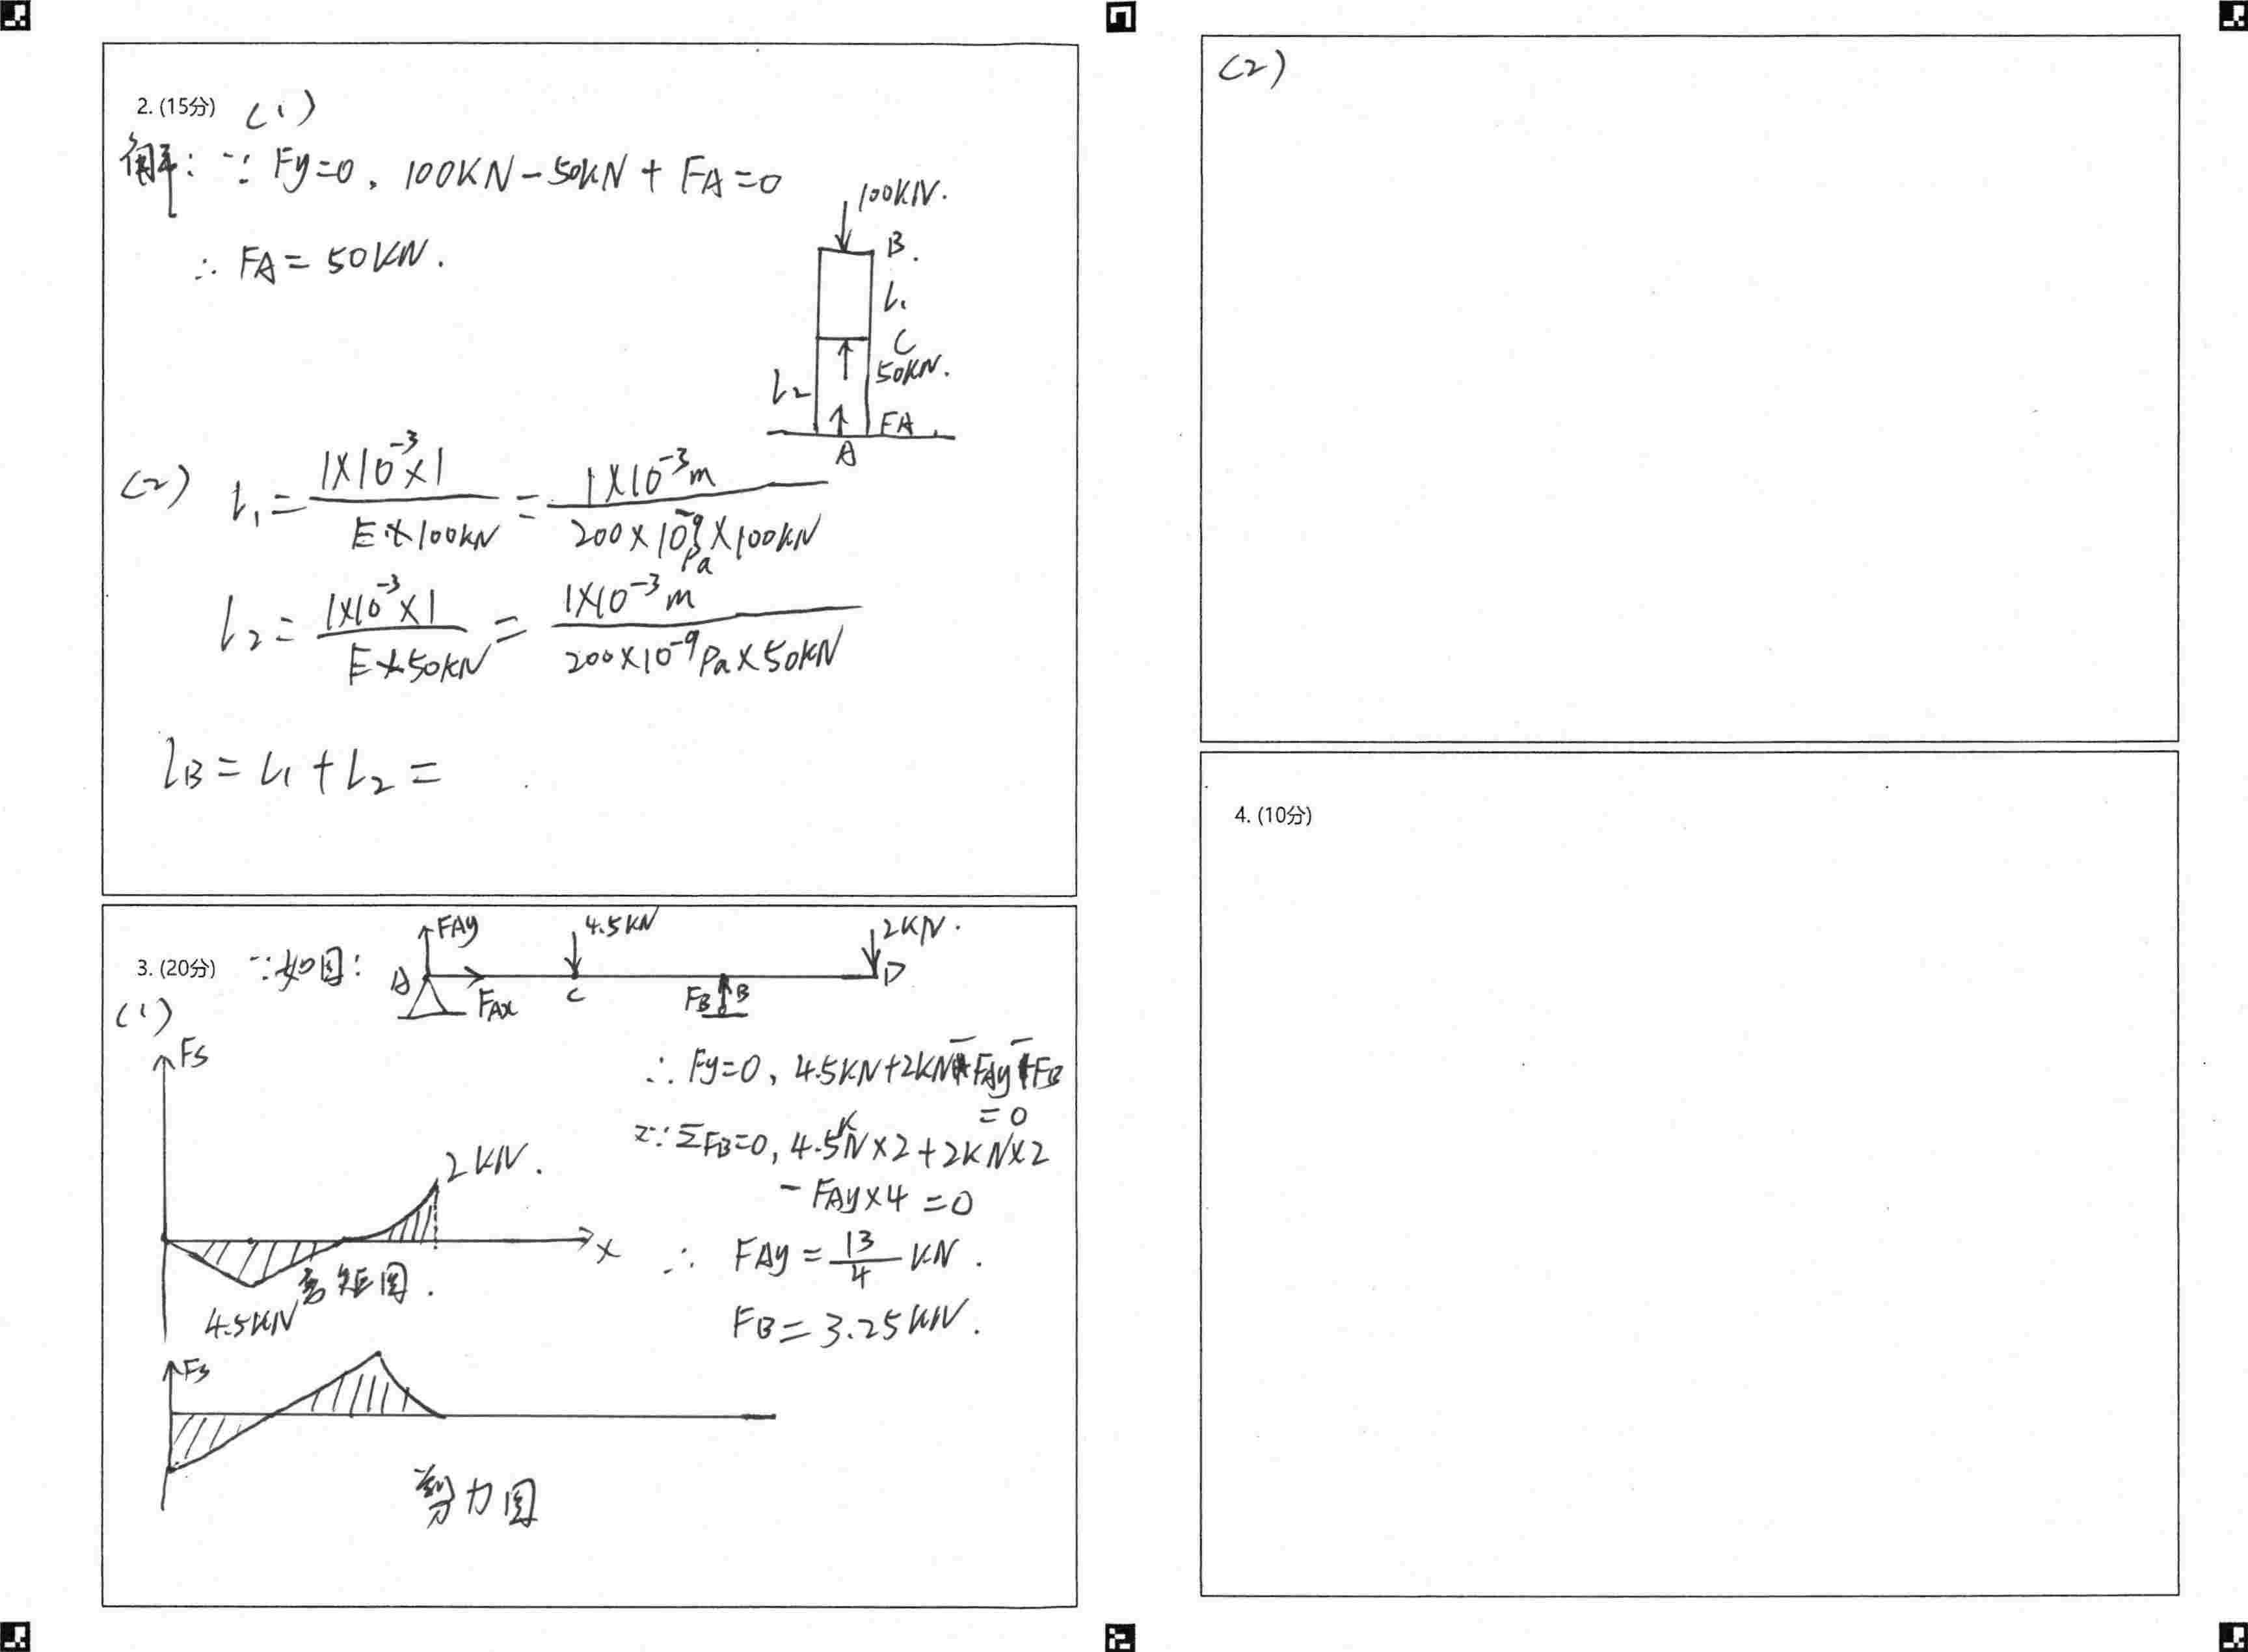 2. (15分) (1)
解: ∵ Fy=0, 100KN-50KN+FA=0
∴ FA=50KN.
100KN.
B.
L₁
C
50KN.
L₂
FA
A
(2) L₁= 1×10⁻³×1 / E×100KN = 1×10⁻³m / 200×10⁻⁹Pa×100KN
L₂= 1×10⁻³×1 / E×50KN = 1×10⁻³m / 200×10⁻⁹Pa×50KN
lB=L₁+L₂=
3. (20分) ∵如图:
FAy 4.5KN 2KN.
A FAx C FB B D
(1)
Fs
∴ Fy=0, 4.5KN+2KN-FAy-FB
=0
又∵ΣFB=0, 4.5KN×2+2KN×2
-FAy×4=0
∴ FAy=13/4 KN.
FB=3.25KN.
2KN.
x
弯矩图.
4.5KN
Fs
剪力图
(2)
4. (10分)